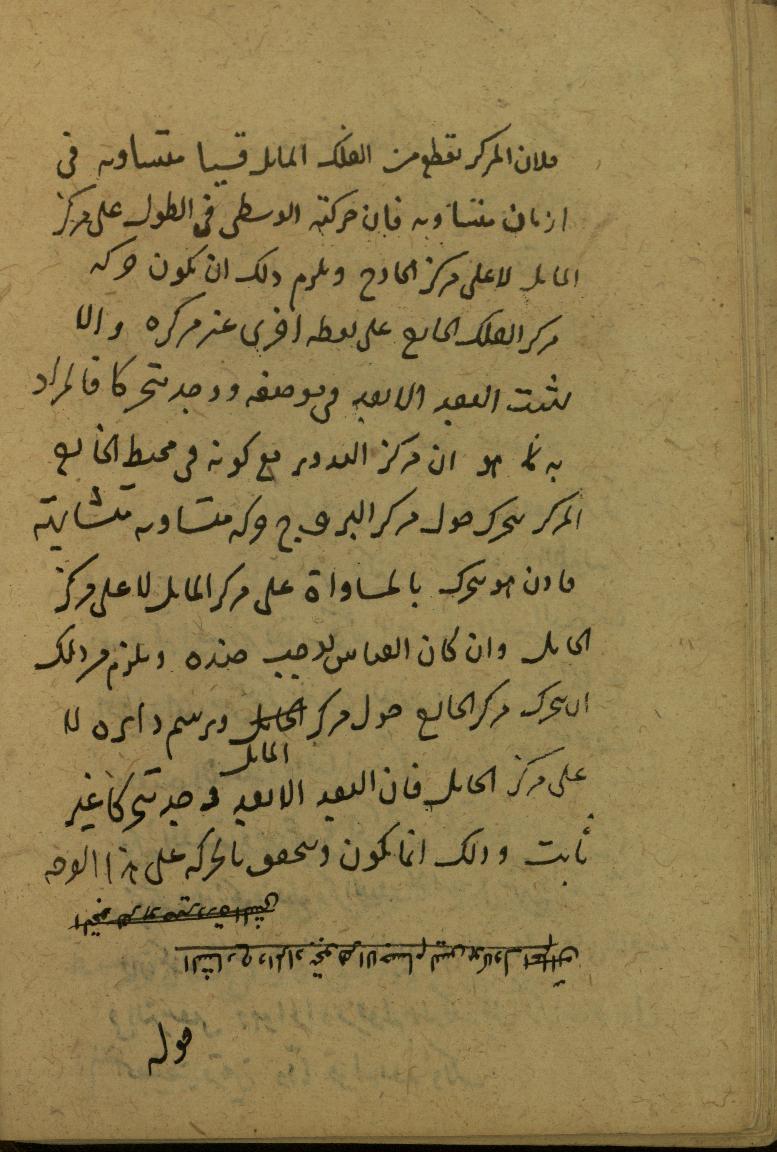 فلان المركز يقطع من الفلك المايل قسيا متساويه في
ازمان متساويه فان حركته الوسطى في الطول على مركز
المايل لا على مركز الخارج ويلزم ذلك ان يكون حركه
مركز الفلك الخارج على نقطه اخرى عند مركزه والا
لثبت البعد الابعد في موضعه ووجد متحركا فالمراد
به هو ان مركز التدوير مع كونه في محيط الخارج
المركز يتحرك حول مركز البروج حركه متساويه متشابهة
فاذن هو يتحرك بالمساواة على مركز المايل لا على مركز
الحامل وان كان القياس يوجب ضده ويلزم من ذلك
ان يتحرك مركز الخارج حول مركز الحامل ويرسم دايره لا
المايل
على مركز الحامل فان البعد الابعد وجد متحركا غير
ثابت وذلك انما يكون ويتحقق بالحركه على هذا الوجه
قوله